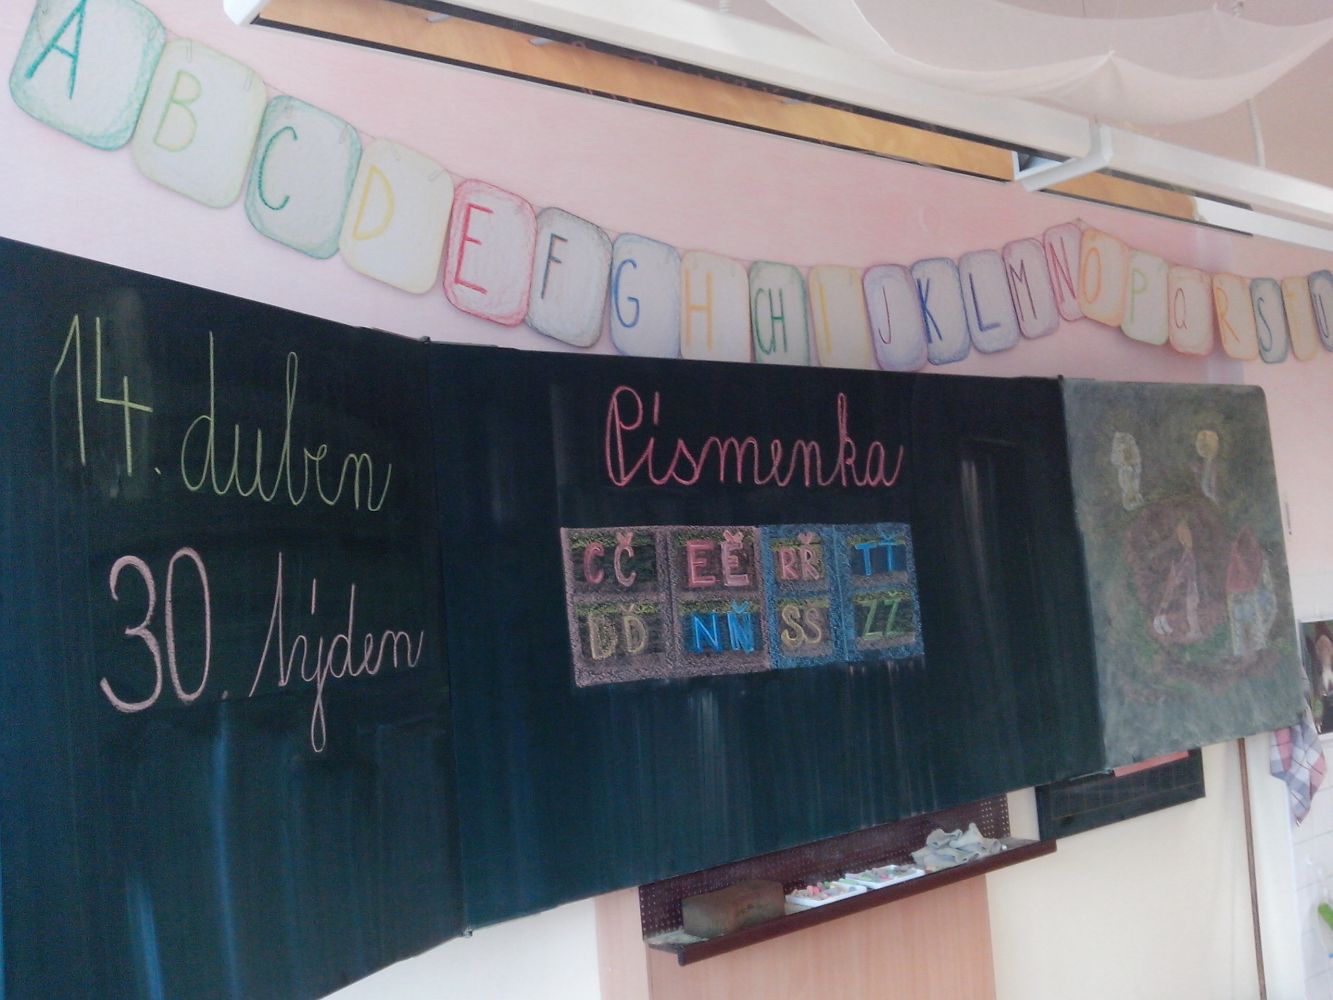 A B C D E F G H CH I J K L M N O P Q R S T U
14. duben
30. týden
Písmenka
C Č E Ě R Ř T Ť
D Ď N Ň S Š Z Ž